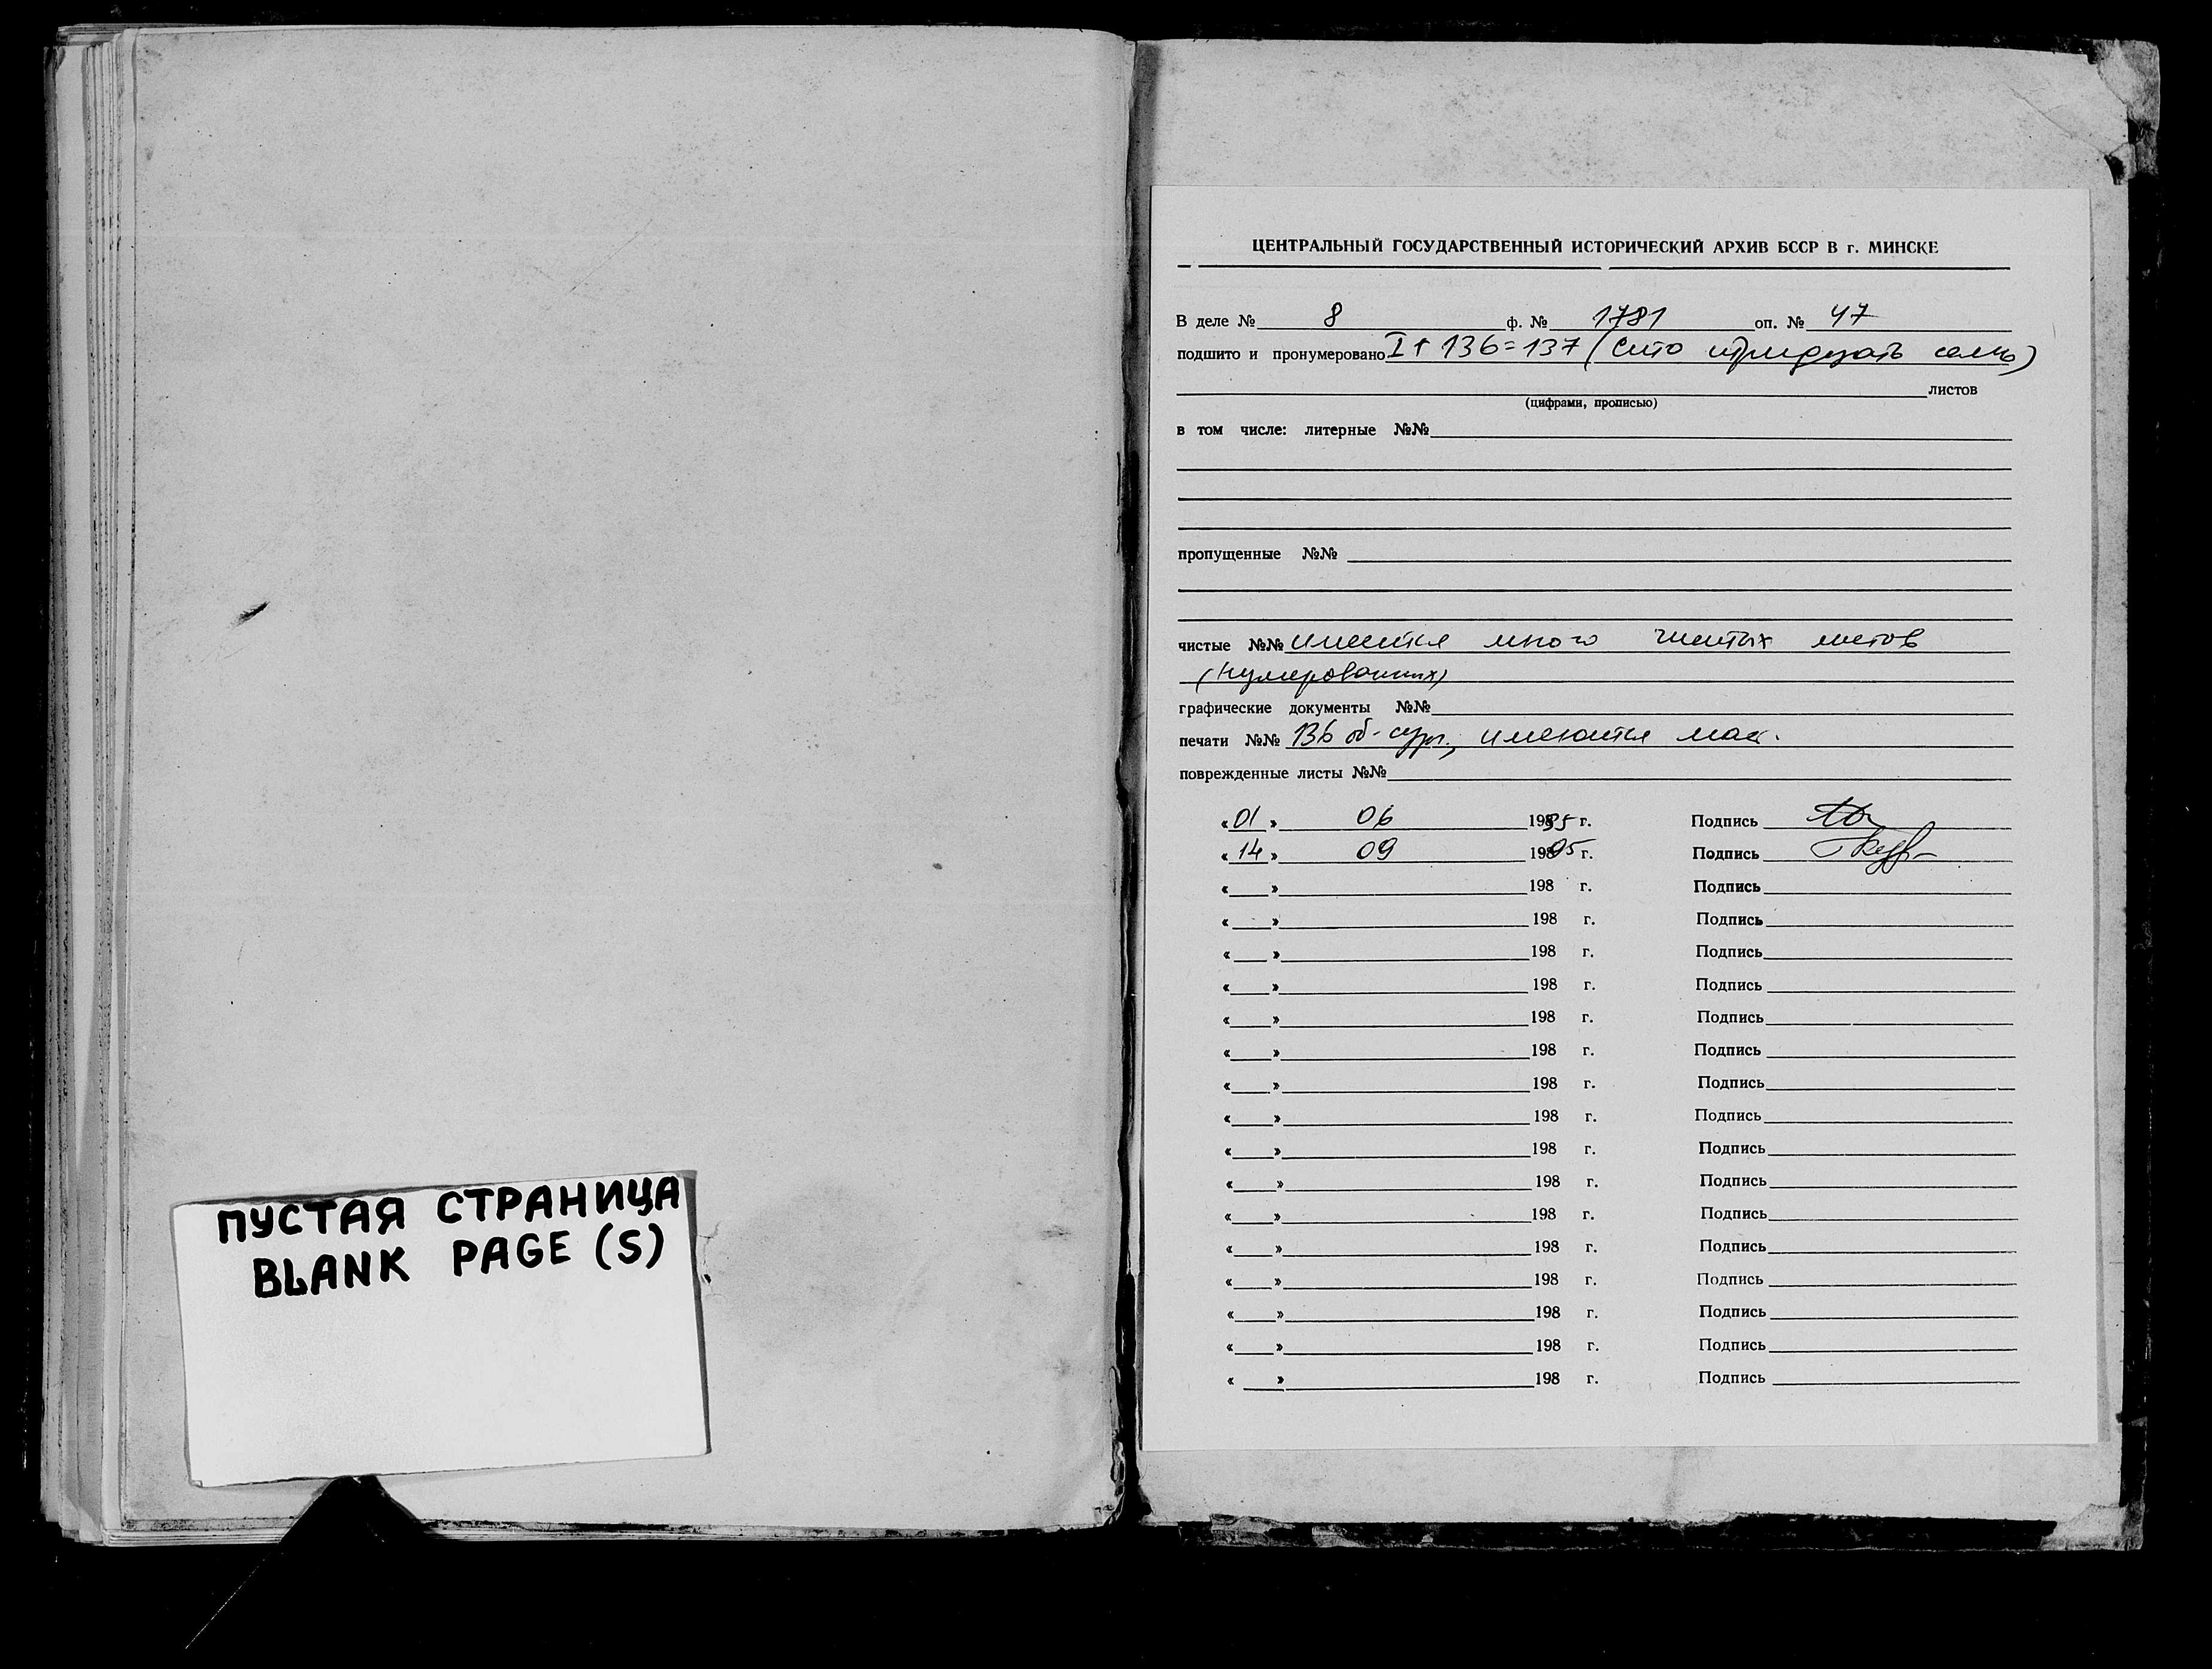 ПУСТАЯ СТРАНИЦА
BLANK PAGE (S)
ЦЕНТРАЛЬНЫЙ ГОСУДАРСТВЕННЫЙ ИСТОРИЧЕСКИЙ АРХИВ БССР В г. МИНСКЕ
В деле № 8 ф. № 1781 оп. № 47
подшито и пронумеровано I + 136 = 137 (сто тридцать семь)
листов
(цифрами, прописью)
в том числе: литерные №№
пропущенные №№
чистые №№ имеются много чистых листов
(нумерованных)
графические документы №№
печати №№ 136 об - сург., имеются мас.
поврежденные листы №№
«01» 06 1995 г. Подпись
«14» 09 1995 г. Подпись
«  » 198 г. Подпись
«  » 198 г. Подпись
«  » 198 г. Подпись
«  » 198 г. Подпись
«  » 198 г. Подпись
«  » 198 г. Подпись
«  » 198 г. Подпись
«  » 198 г. Подпись
«  » 198 г. Подпись
«  » 198 г. Подпись
«  » 198 г. Подпись
«  » 198 г. Подпись
«  » 198 г. Подпись
«  » 198 г. Подпись
«  » 198 г. Подпись
«  » 198 г. Подпись